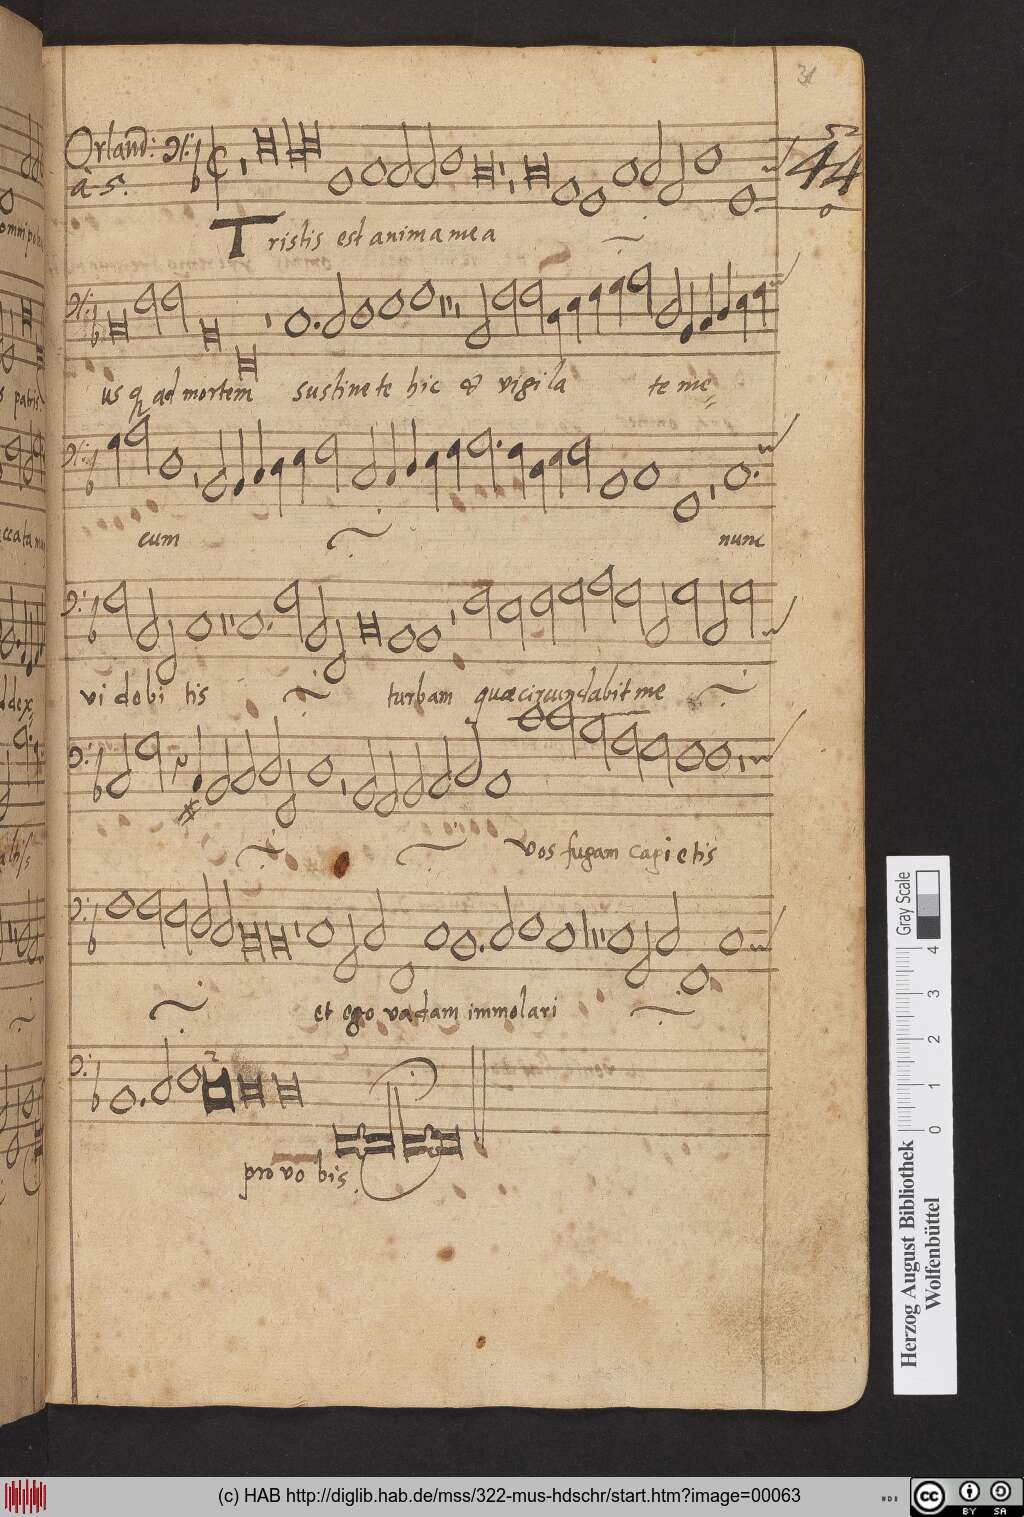 31
Orland:
à 5.
52
44
Tristis est anima mea
us q ad mortem sustinete hic & vigila te me=
cum nunc
vi dobi tis turbam quæ circundabit me
vos fugam capietis
et ego vadam immolari
pro vobis.
omni po
s patris
ccata mu
ddex=
Gray Scale
0 1 2 3 4
Herzog August Bibliothek
Wolfenbüttel
(c) HAB http://diglib.hab.de/mss/322-mus-hdschr/start.htm?image=00063
cc BY SA